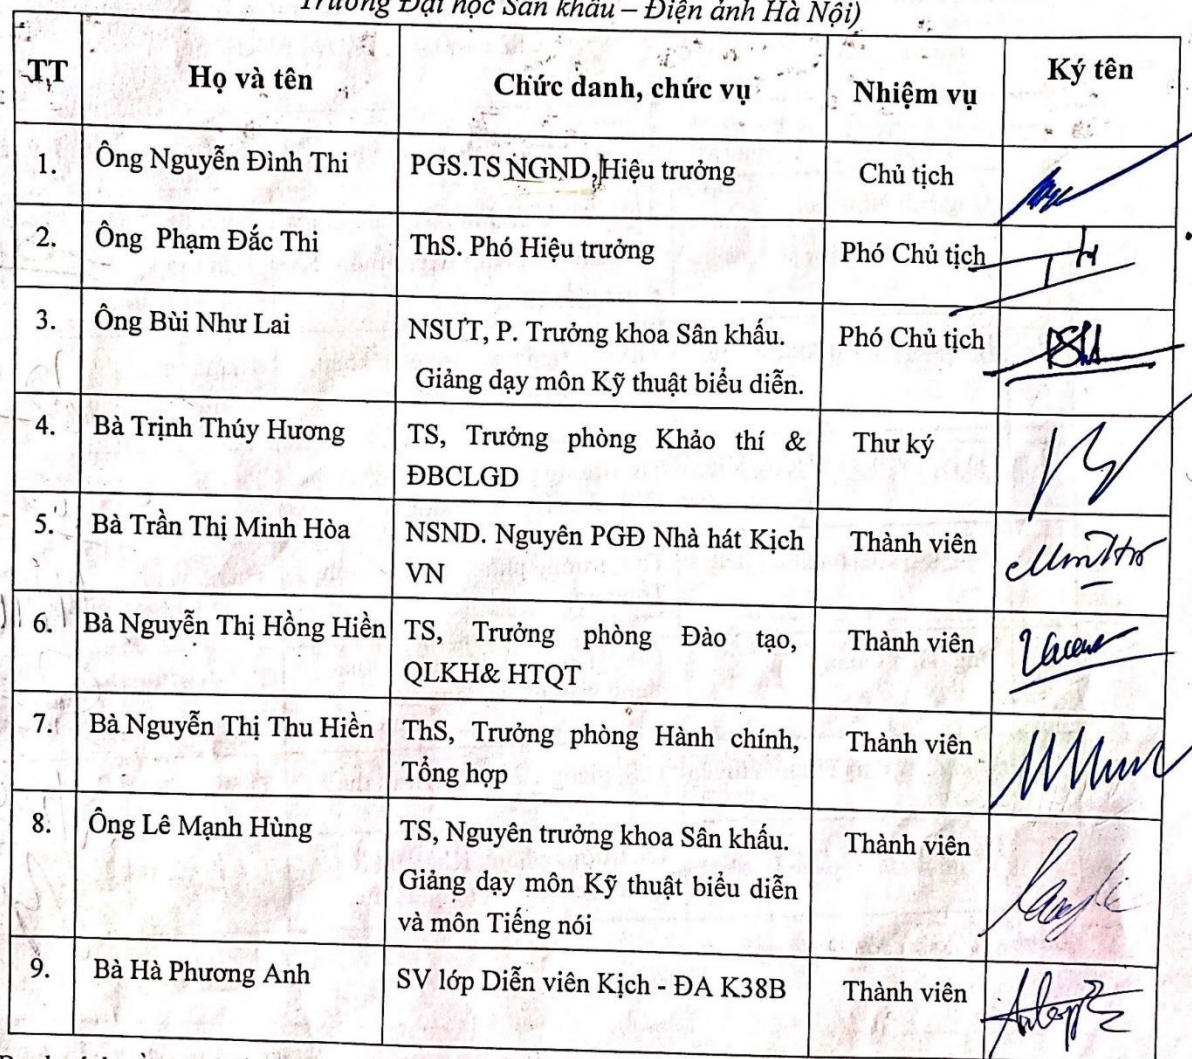 Trường Đại học Sân khấu – Điện ảnh Hà Nội)
TT Họ và tên Chức danh, chức vụ Nhiệm vụ Ký tên
1. Ông Nguyễn Đình Thi PGS.TS NGND,Hiệu trưởng Chủ tịch
2. Ông Phạm Đắc Thi ThS. Phó Hiệu trưởng Phó Chủ tịch
3. Ông Bùi Như Lai NSƯT, P. Trưởng khoa Sân khấu. Phó Chủ tịch
Giảng dạy môn Kỹ thuật biểu diễn.
4. Bà Trịnh Thúy Hương TS, Trưởng phòng Khảo thí & Thư ký
ĐBCLGD
5. Bà Trần Thị Minh Hòa NSND. Nguyên PGĐ Nhà hát Kịch Thành viên
VN
6. Bà Nguyễn Thị Hồng Hiền TS, Trưởng phòng Đào tạo, Thành viên
QLKH& HTQT
7. Bà Nguyễn Thị Thu Hiền ThS, Trưởng phòng Hành chính, Thành viên
Tổng hợp
8. Ông Lê Mạnh Hùng TS, Nguyên trưởng khoa Sân khấu. Thành viên
Giảng dạy môn Kỹ thuật biểu diễn
và môn Tiếng nói
9. Bà Hà Phương Anh SV lớp Diễn viên Kịch - ĐA K38B Thành viên